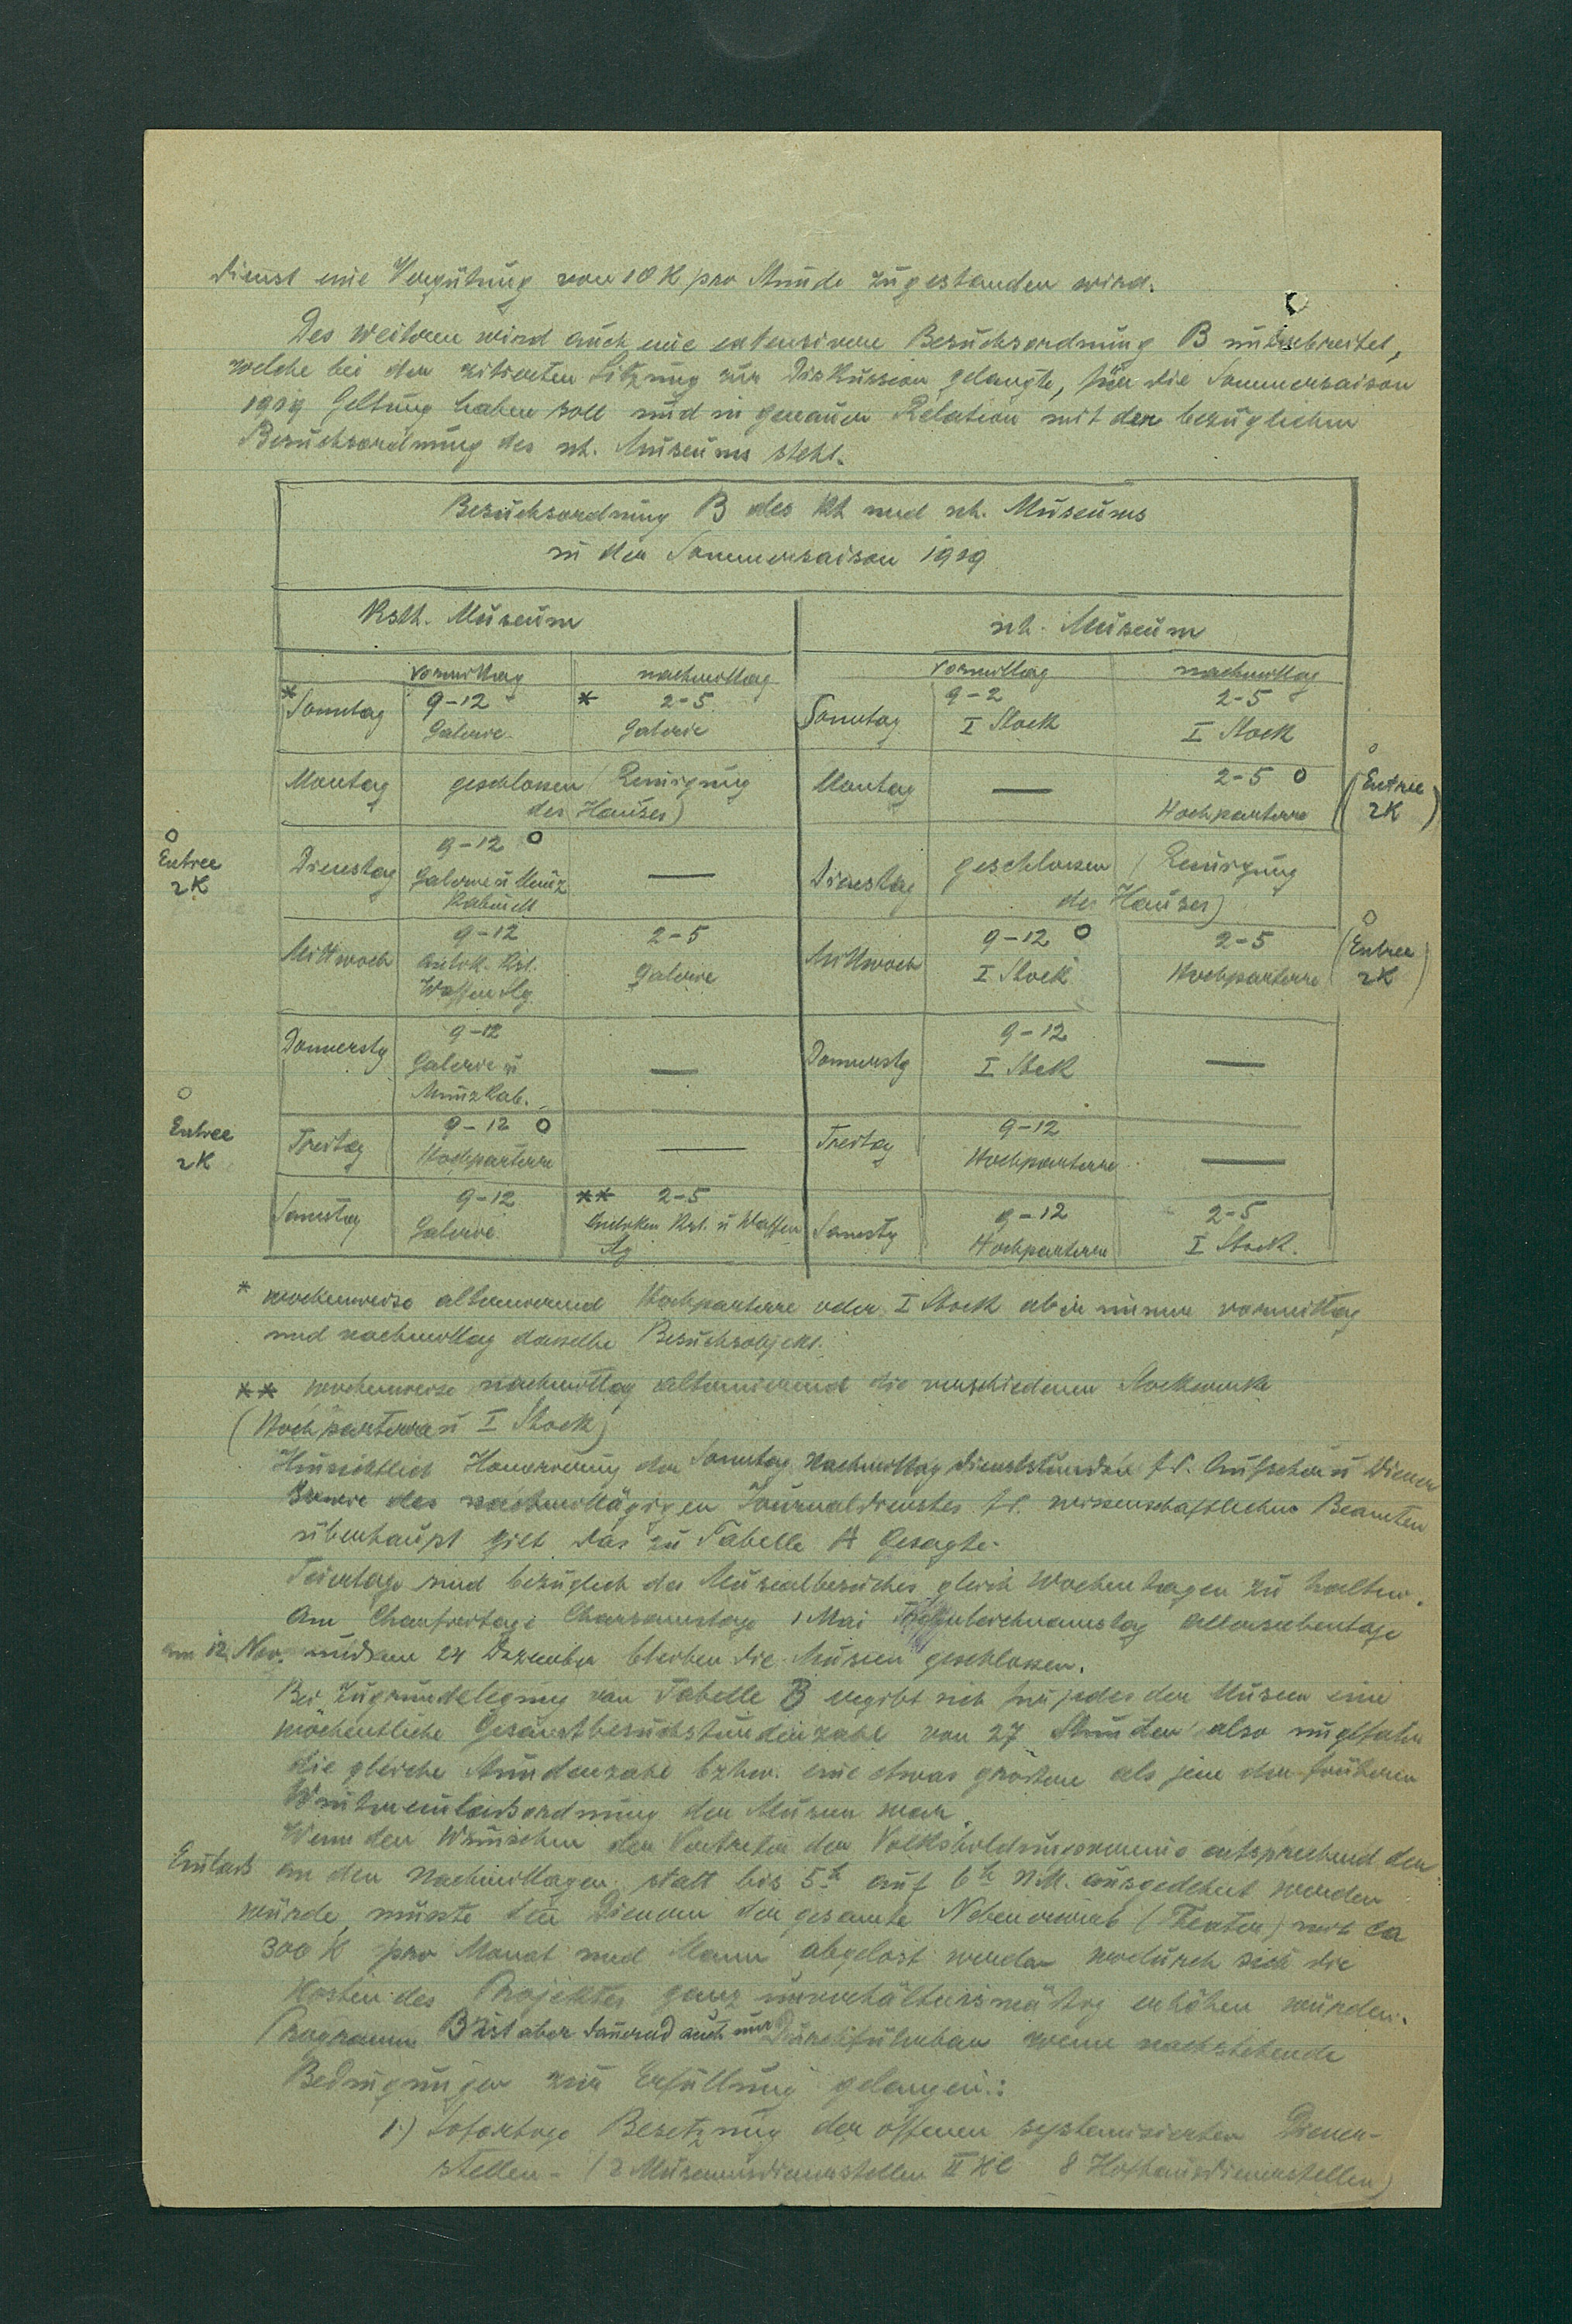 Dienst eine Vergütung von 10 K pro Stunde zugestanden wird.
Des weiteren wird auch eine extensivere Besuchsordnung B unterbreitet,
welche bei der zitierten Sitzung zur Diskussion gelangte, für die Sommersaison
1919 Geltung haben soll und in genauer Relation mit der bezüglichen
Besuchsordnung des nh. Museums steht.
Besuchsordnung B des kh und nh. Museums
in der Sommersaison 1919
Ksth. Museum
nh. Museum
vormittag nachmittag vormittag nachmittag
* Sonntag 9-12 * 2-5 Sonntag 9-2 2-5
Galerie Galerie I Stock I Stock
Montag geschlossen (Reinigung des Hauses) Montag — 2-5 o Hochparterre
o (Entree 2K)
o Entree 2K
Dienstag 9-12 o Galerie u Münz Kabinett — Dienstag geschlossen (Reinigung des Hauses)
Mittwoch 9-12 Antik. Kst. Waffen Slg. 2-5 Galerie Mittwoch 9-12 o I Stock 2-5 Hochparterre
o (Entree 2K)
Donnerstg 9-12 Galerie u Münzkab. — Donnerstg 9-12 I Stock —
o Entree 2K
Freitag 9-12 o Hochparterre — Freitag 9-12 Hochparterre —
Samstag 9-12 Galerie ** 2-5 Antiken Kst. u Waffen Slg Samstg 9-12 Hochparterre 2-5 I Stock.
* wochenweise alternierend Hochparterre oder I Stock aber immer vormittag
und nachmittag dasselbe Besuchsobjekt.
** wochenweise nachmittag alternierend die verschiedenen Stockwerke
(Hochparterre u I Stock)
Hinsichtlich Honorierung der Sonntag Nachmittag Dienststunden f. d. Aufseher u Diener
sowie des nachmittägigen Journaldienstes f. d. wissenschaftlichen Beamten
überhaupt gilt das zu Tabelle A Gesagte.
Feiertage sind bezüglich des Musealbesuches gleich Wochentagen zu halten.
Am Charfreitage Charsamstage 1 Mai Frohnleichnamstag Allerseelentage
am 12. Nov. und am 24 Dezember bleiben die Museen geschlossen.
Bei Zugrundelegung von Tabelle B ergibt sich für jedes der Museen eine
wöchentliche Gesamtbesuchstundenzahl von 27 Stunden also ungefähr
die gleiche Stundenzahl bzhw. eine etwas größere als jene der früheren
Wintereinlaßordnung der Museen war.
Wenn den Wünschen der Vertreter der Volksbildungsvereine entsprechend der
Einlass an den Nachmittagen statt bis 5h auf 6h N.M. ausgedehnt werden
würde, müsste den Dienern der gesamte Nebenerwerb (Theater) mit ca
300 K pro Monat und Mann abgelöst werden wodurch sich die
Kosten des Projektes ganz unverhältnismäßig erhöhen würden.
Programm B ist aber dauernd auch nur Durchführbar wenn nachstehende
Bedingungen zur Erfüllung gelangen:
1.) Sofortige Besetzung der offenen systemisierten Diener-
stellen - (2 Museumsdienerstellen II Kl 8 Hofhausdienerstellen)